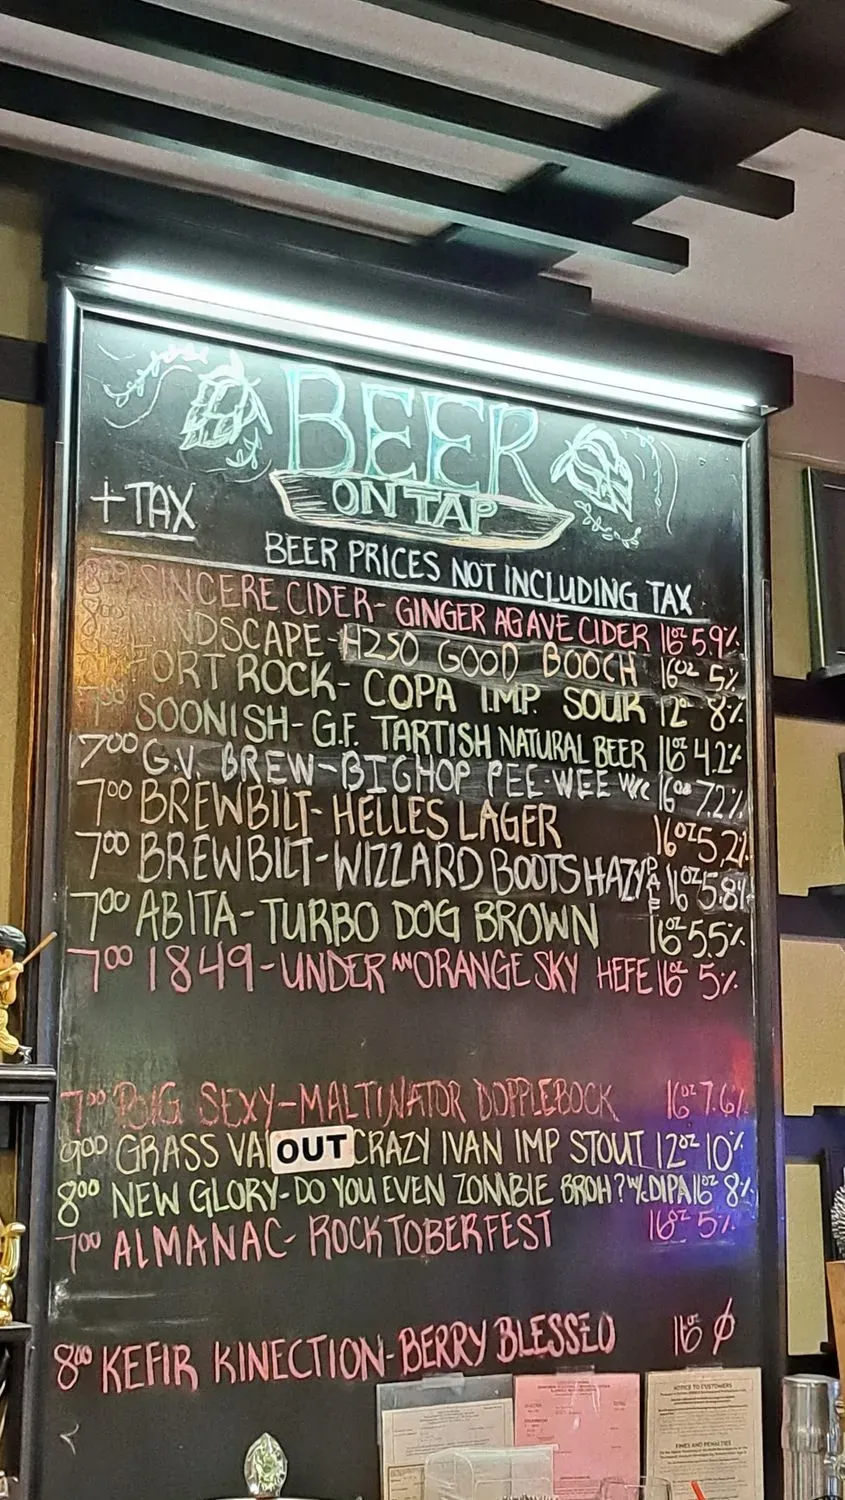 BEER
ON TAP
+TAX
BEER PRICES NOT INCLUDING TAX
8⁰⁰ SINCERE CIDER- GINGER AGAVE CIDER 16oz 5.9%
8⁰⁰ MINDSCAPE- H2SO GOOD BOOCH 16oz 5%
FORT ROCK- COPA IMP. SOUR 12oz 8%
7⁰⁰ SOONISH- G.F. TARTISH NATURAL BEER 16oz 4.2%
7⁰⁰ G.V. BREW-BIGHOP PEE-WEE W/C 16oz 7.2%
7⁰⁰ BREWBILT- HELLES LAGER 16oz 5.2%
7⁰⁰ BREWBILT-WIZZARD BOOTS HAZY 16oz 5.8%
7⁰⁰ ABITA- TURBO DOG BROWN 16oz 5.5%
7⁰⁰ 1849-UNDER AN ORANGE SKY HEFE 16oz 5%
7⁰⁰ BIG SEXY-MALTINATOR DOPPLEBOCK 16oz 7.6%
9⁰⁰ GRASS VA OUT CRAZY IVAN IMP STOUT 12oz 10%
8⁰⁰ NEW GLORY-DO YOU EVEN ZOMBIE BROH? W/C DIPA 16oz 8%
7⁰⁰ ALMANAC- ROCKTOBERFEST 16oz 5%
8⁰⁰ KEFIR KINECTION-BERRY BLESSED 16oz Ø
NOTICE TO CUSTOMERS
FINES AND PENALTIES